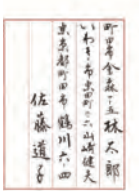 町田市金森一ノ五林太郎
いわき市東田町二ノ六山崎健夫
東京都町田市鶴川六ノ四
佐藤道子